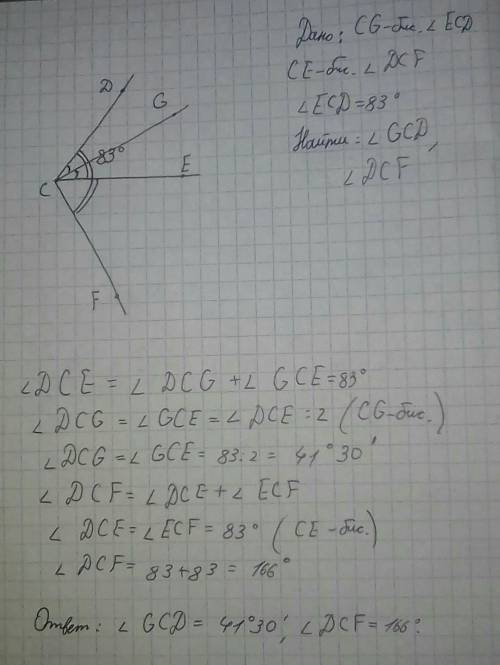 Дано: CG-бис. ∠ ECD
CE-бис. ∠ DCF
∠ECD=83°
Найти: ∠ GCD,
∠ DCF
D
G
83°
C
E
F
∠DCE = ∠ DCG +∠ GCE=83°
∠ DCG = ∠GCE = ∠ DCE :2 (CG-бис.)
∠DCG = ∠ GCE = 83:2 = 41°30′
∠ DCF= ∠DCE+∠ ECF
∠ DCE=∠ECF= 83° (CE-бис.)
∠ DCF= 83+83 = 166°
Ответ: ∠ GCD= 41°30′, ∠ DCF=166°.